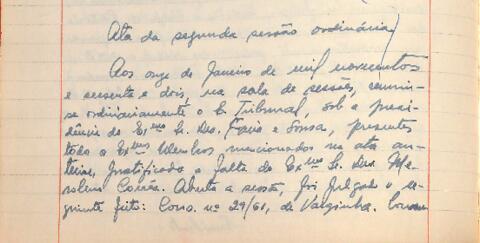 Ata da segunda sessão ordinária
Aos onze de Janeiro de mil novecentos
e sessenta e dois, na sala de sessões, reuniu-
se ordinàriamente o E. Tribunal, sob a presi-
dência do Exmo Sr. Des. Faria e Sousa, presentes
todo o Exmos Membros mencionados na ata an-
terior, justificada a falta do Exmo Sr. Des. Me-
rolino Corrêa. Aberta a sessão, foi julgado o se-
guinte feito: Cons. nº 29/61, de Varginha.